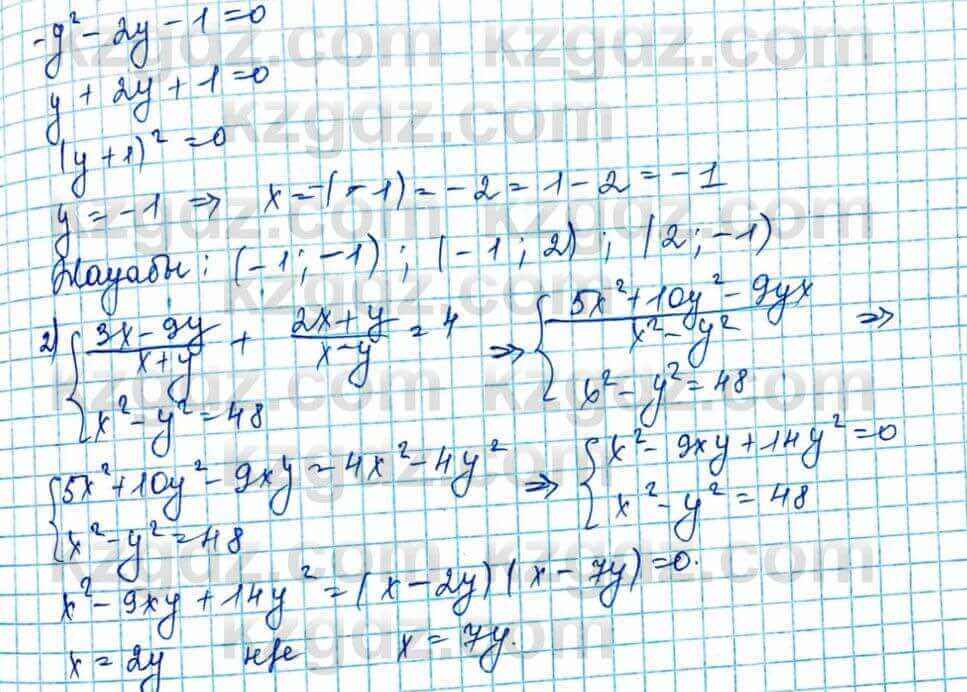 -y² - 2y - 1 = 0
y + 2y + 1 = 0
(y + 1)² = 0
y = -1 => x = -(-1) = -2 = 1 - 2 = -1
Жауабы: (-1; -1); (-1; 2); (2; -1)
2) { (3x - 9y)/(x + y) + (2x + y)/(x - y) = 4 => { (5x² + 10y² - 9yx)/(x² - y²) =>
x² - y² = 48 x² - y² = 48
{ 5x² + 10y² - 9xy = 4x² - 4y² => { x² - 9xy + 14y² = 0
x² - y² = 48 x² - y² = 48
x² - 9xy + 14y² = (x - 2y)(x - 7y) = 0.
x = 2y не x = 7y.
kzgdz.com